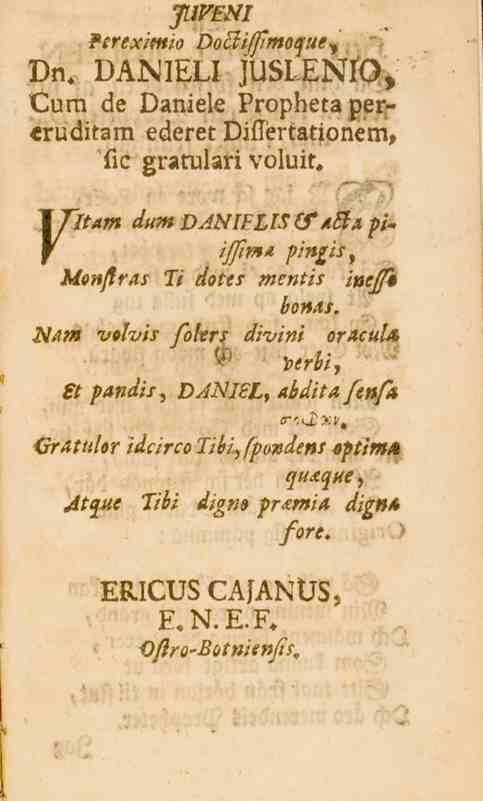 JUVENI
Perexímio Doctissimoque,
Dn. DANIELI JUSLENIO,
Cum de Daniele Propheta per-
eruditam ederet Dissertationem,
sic gratulari voluit.
VItam dum DANIELIS & acta pi-
issima pingis,
Monstras Ti dotes mentis inesse
bonas.
Nam volvis solers divini oracula
verbi,
Et pandis, DANIEL, abdita sensa
Gratulor idcirco Tibi, spondens optima
quæque,
Atque Tibi digno præmia digna
fore.
ERICUS CAJANUS,
F. N. E. F.
Ostro-Botniensis.